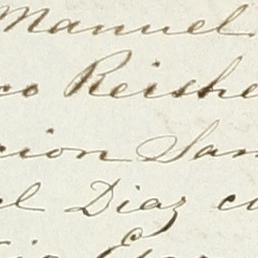 Manuel
co Reishe
cion San
el Diaz c